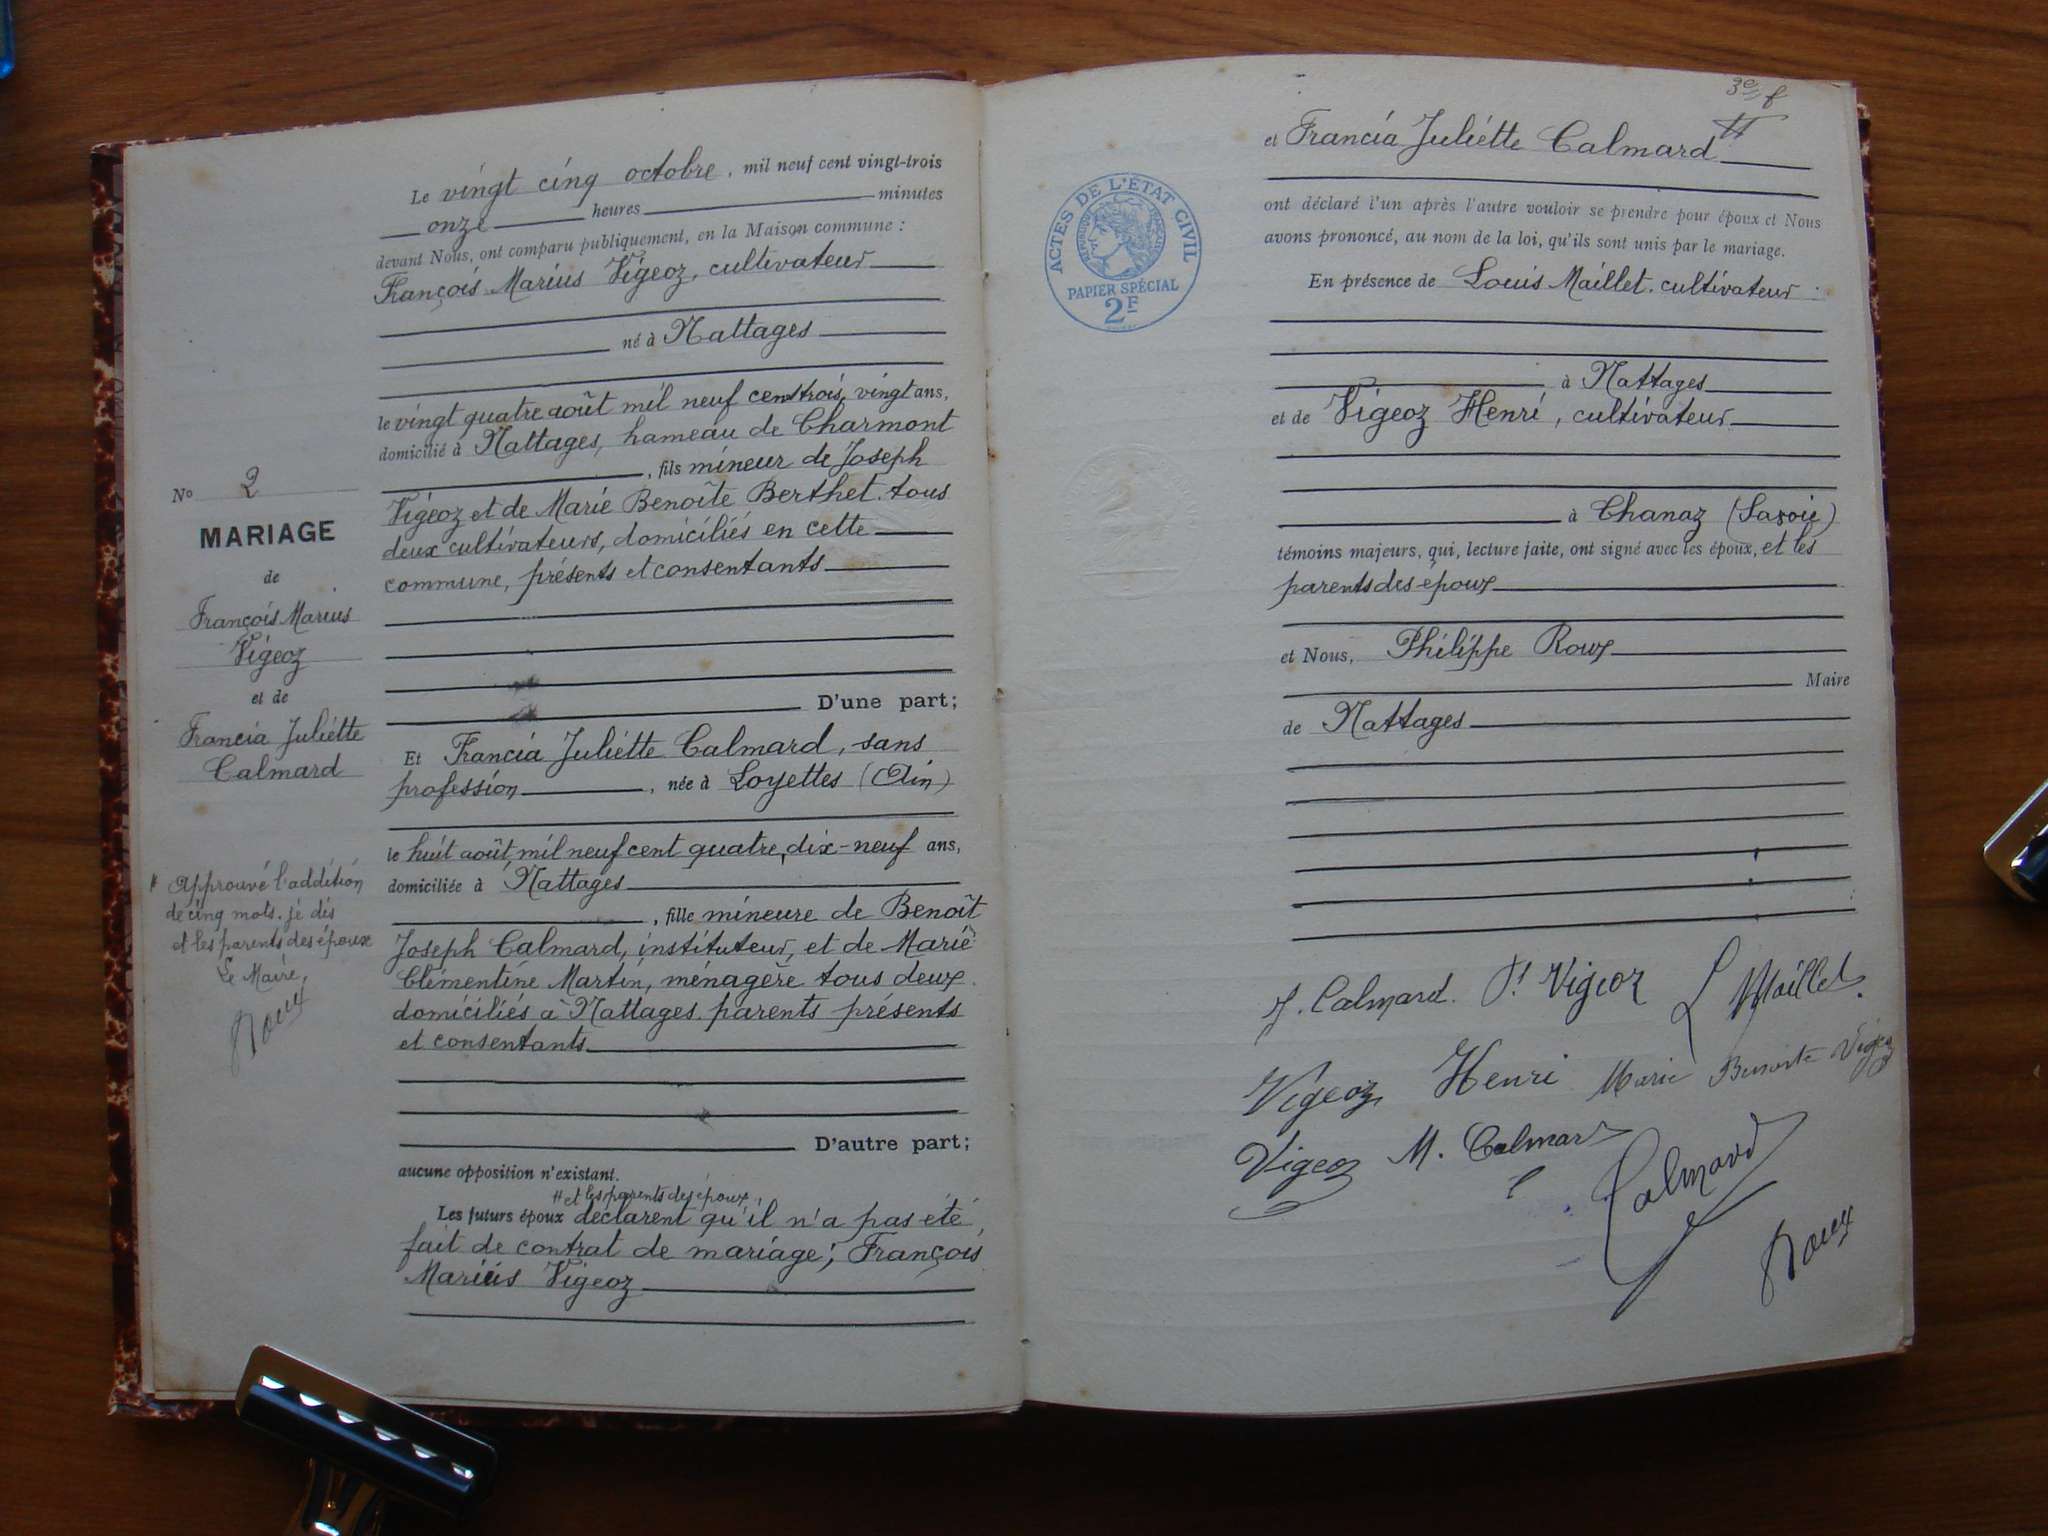 Le vingt cinq octobre, mil neuf cent vingt-trois
onze heures minutes
devant Nous, ont comparu publiquement, en la Maison commune :
François Marius Vigeoz, cultivateur
né à Nattages
le vingt quatre août mil neuf cent trois, vingt ans,
domicilié à Nattages, hameau de Charmont
, fils mineur de Joseph
Vigeoz et de Marie Benoîte Berthet. tous
deux cultivateurs, domiciliés en cette
commune, présents et consentants
D'une part;
Et Francia Juliétte Calmard, sans
profession, née à Loyettes (Ain)
le huit août, mil neuf cent quatre, dix-neuf ans,
domiciliée à Nattages
, fille mineure de Benoît
Joseph Calmard, instituteur, et de Marie
Clémentine Martin, ménagère tous deux
domiciliés à Nattages, parents présents
et consentants
D'autre part;
aucune opposition n'existant.
# et les parents des époux,
Les futurs époux déclarent qu'il n'a pas été
fait de contrat de mariage; François
Marius Vigeoz
No 2
MARIAGE
de
François Marius
Vigeoz
et de
Francia Juliétte
Calmard
# Approuvé l'addition
de cinq mots. je dis
et les parents des époux
Le Maire,
Roux
3e f
et Francia Juliétte Calmard
ACTES DE L'ÉTAT CIVIL
RÉPUBLIQUE FRANÇAISE
PAPIER SPÉCIAL
2F
ont déclaré l'un après l'autre vouloir se prendre pour époux et Nous
avons prononcé, au nom de la loi, qu'ils sont unis par le mariage.
En présence de Louis Maillet. cultivateur
à Nattages
et de Vigeoz Henri, cultivateur
à Chanaz (Savoie)
témoins majeurs, qui, lecture faite, ont signé avec les époux, et les
parents des époux
et Nous, Philippe Roux
Maire
de Nattages
J. Calmard. Vigeoz L Maillet.
Vigeoz Henri Marie Benoite Vigeoz
Vigeoz M. Calmard Calmard
Roux